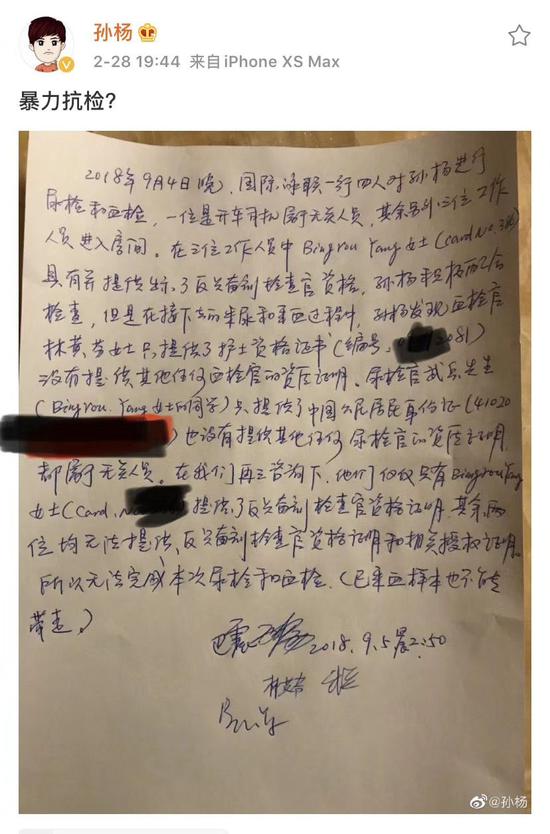 孙杨
2-28 19:44 来自 iPhone XS Max
暴力抗检?
2018年9月4日晚,国际泳联一行四人对孙杨进行
尿检和血检,一位是开车司机属于无关人员,其余另外三位工作
人员进入房间。在三位工作人员中Bingrou Yang女士(Card.No.
具有并提供出示了反兴奋剂检查官资格,孙杨积极配合
检查,但是在接下去的采尿和采血过程中,孙杨发现血检官
林黄 女士只提供了护士资格证书(编号, 2081)
没有提供其他任何血检官的资质证明。尿检官 先生
(Bingrou. Yang女士的同学)只提供了中国公民居民身份证(41020
)也没有提供其他任何尿检官的资质证明
都属于无关人员。在我们再三咨询下,他们仅仅只有Bingrou Yang
女士(Card.No )提供了反兴奋剂检查官资格证明,其余两
位均无法提供反兴奋剂检查官资格证明和相关授权证明。
所以无法完成本次尿检和血检。(已采血样本也不能
带走。)
2018.9.5晨2:50
@孙杨